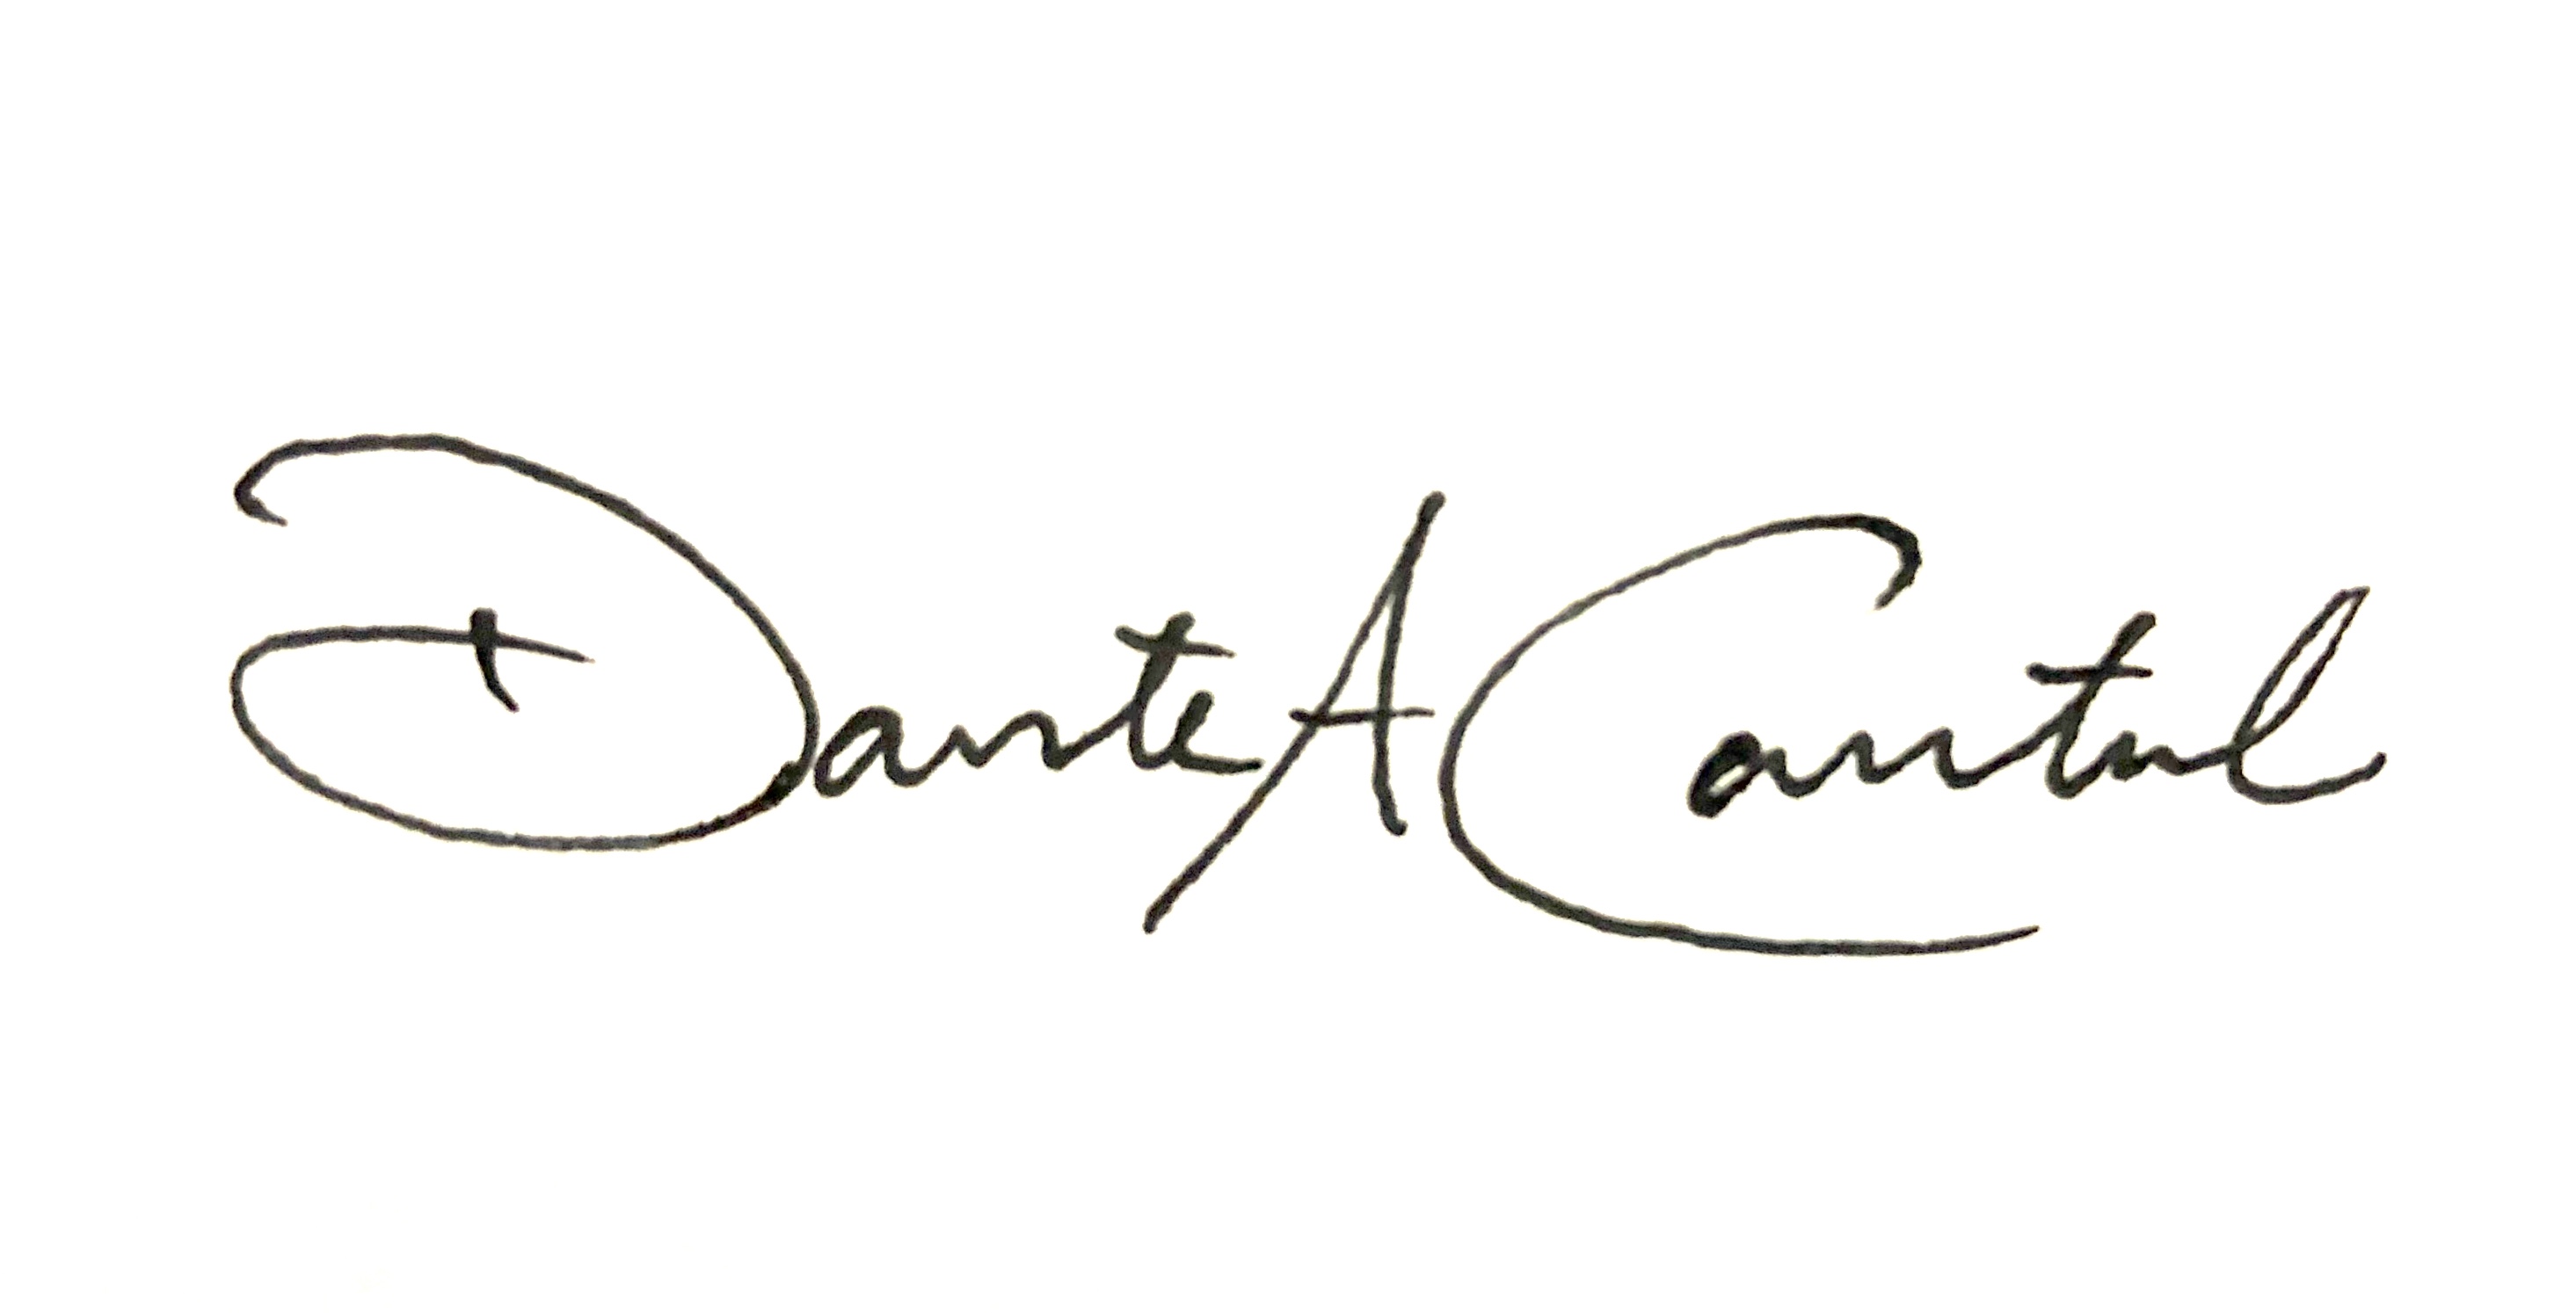 Dante A Cantul